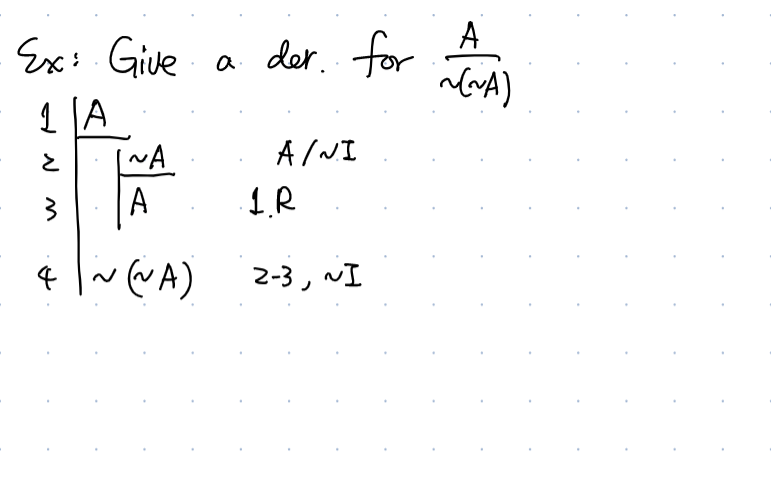 Ex: Give a der. for A / ~(~A)
1 | A
2 | | ~A A/~I
3 | | A 1.R
4 | ~(~A) 2-3, ~I